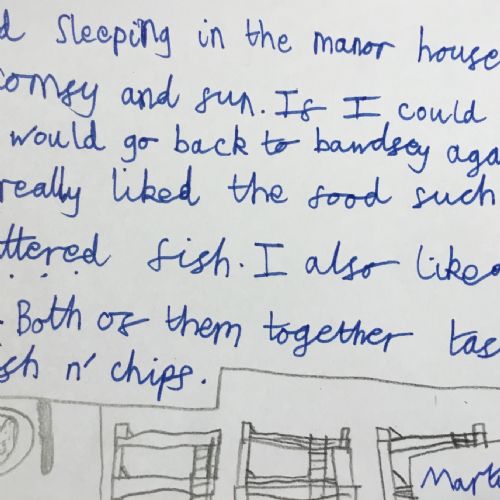 d sleeping in the manor house
comsy and sun. If I could
would go back to bawdsey aga
really liked the food such
ttered fish. I also liked
. Both of them together tas
sh n' chips.
Mart